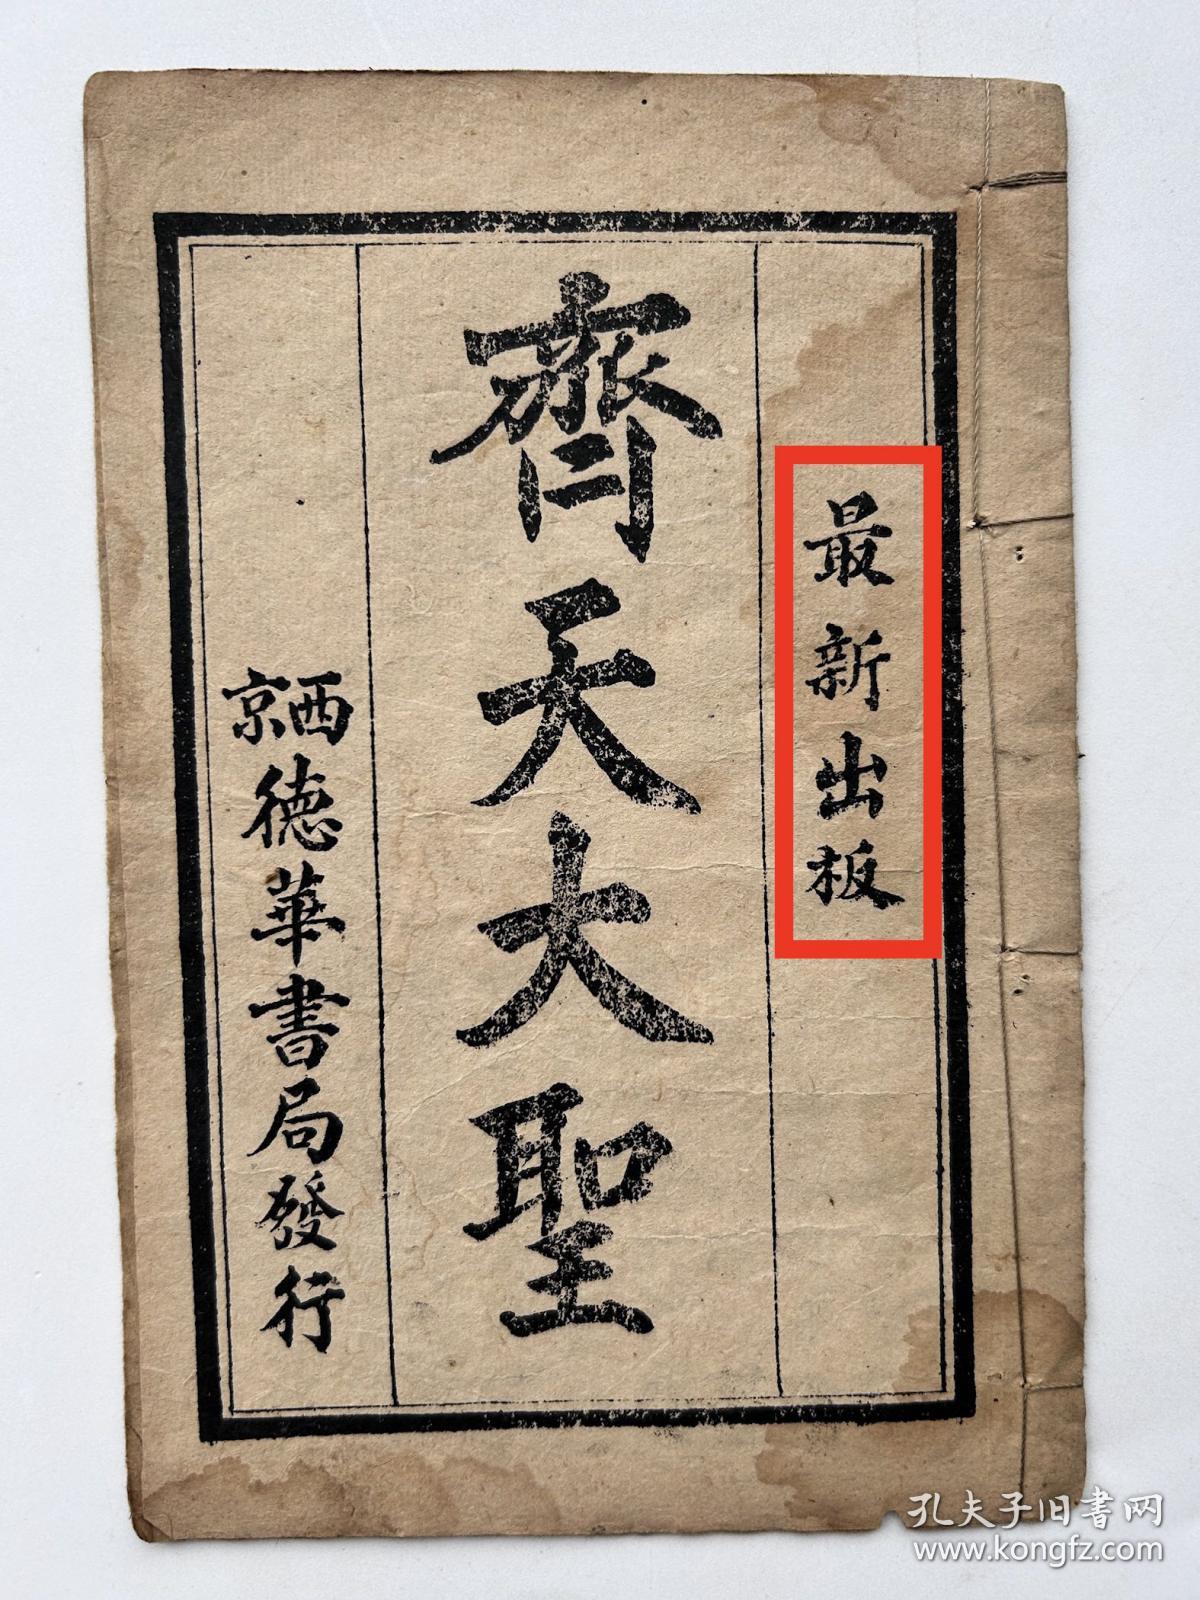 最新出板
齊天大聖
西京德華書局發行
孔夫子旧书网
www.kongfz.com